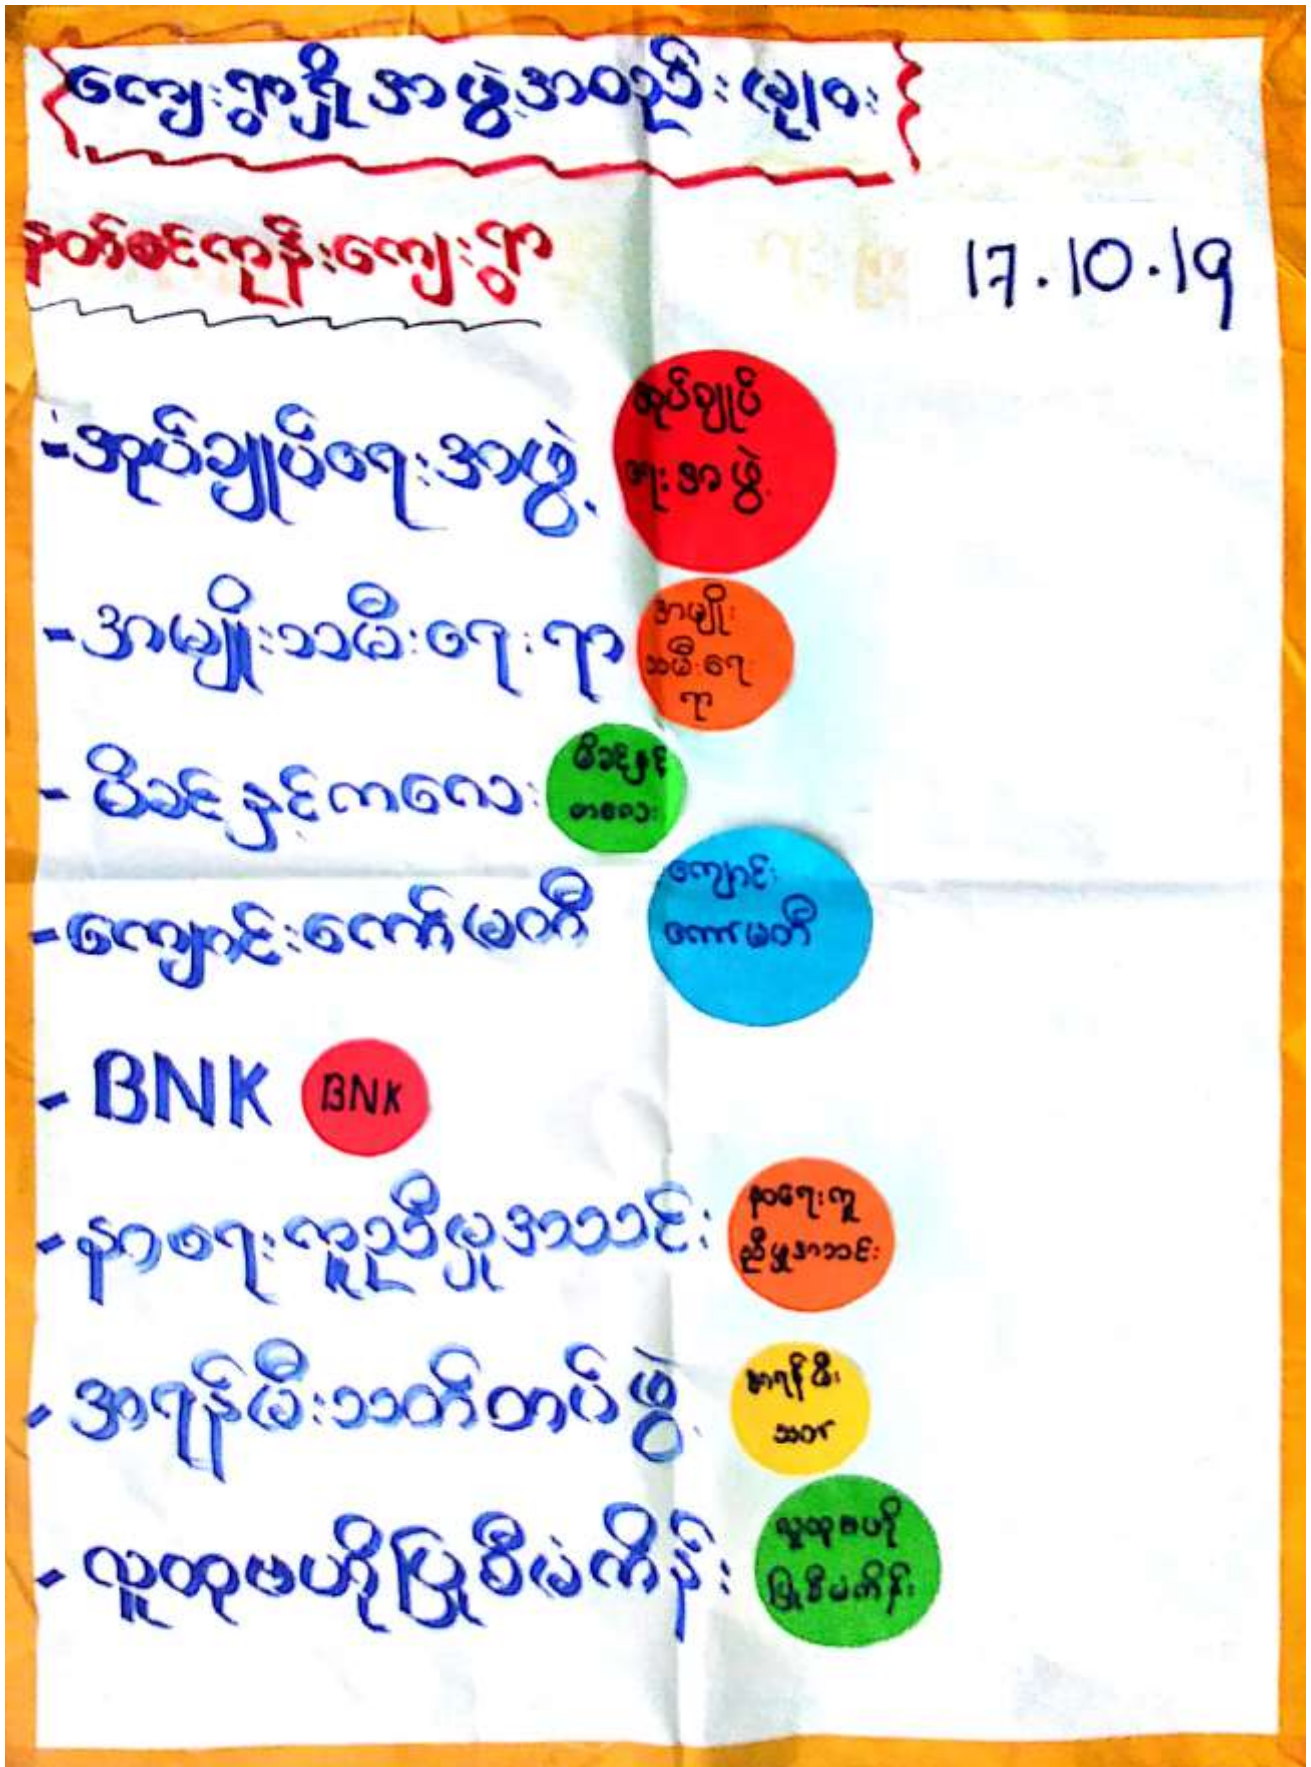 ကျေးရွာရှိ အဖွဲ့အစည်းများ
နတ်စင်ကုန်းကျေးရွာ
17.10.19
-အုပ်ချုပ်ရေးအဖွဲ့
အုပ်ချုပ်
ရေးအဖွဲ့
-အမျိုးသမီးရေးရာ
အမျိုး
သမီးရေး
ရာ
- မိခင်နှင့်ကလေး
မိခင်နှင့်
ကလေး
-ကျောင်းကော်မတီ
ကျောင်း
ကော်မတီ
- BNK
BNK
- နာရေးကူညီမှုအသင်း
နာရေးကူ
ညီမှုအသင်း
- အရန်မီးသတ်တပ်ဖွဲ့
အရန်မီး
သတ်
- လူထုဗဟိုပြုစီမံကိန်း
လူထုဗဟို
ပြုစီမံကိန်း